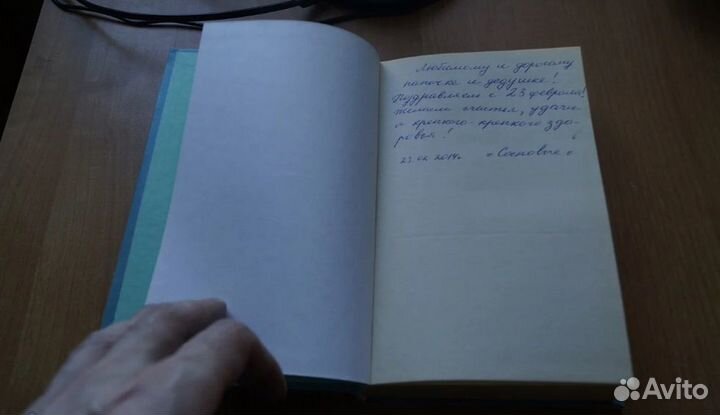 Любимому и дорогому
папочке и дедушке!
Поздравляем с 23 февраля!
желаем счастья, удачи
и крепкого-крепкого здо-
ровья!
23.02.2014г. "Сосновые"
Avito